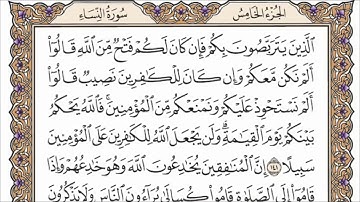 الجُزْءُ الخَامِسُ سُورَةُ النِّسَاءِ
الَّذِينَ يَتَرَبَّصُونَ بِكُمْ فَإِن كَانَ لَكُمْ فَتْحٌ مِّنَ اللَّهِ قَالُوٓا۟
أَلَمْ نَكُن مَّعَكُمْ وَإِن كَانَ لِلْكَٰفِرِينَ نَصِيبٌ قَالُوٓا۟
أَلَمْ نَسْتَحْوِذْ عَلَيْكُمْ وَنَمْنَعْكُم مِّنَ الْمُؤْمِنِينَ ۚ فَاللَّهُ يَحْكُمُ
بَيْنَكُمْ يَوْمَ الْقِيَٰمَةِ ۗ وَلَن يَجْعَلَ اللَّهُ لِلْكَٰفِرِينَ عَلَى الْمُؤْمِنِينَ
سَبِيلًا ١٤١ إِنَّ الْمُنَٰفِقِينَ يُخَٰدِعُونَ اللَّهَ وَهُوَ خَٰدِعُهُمْ وَإِذَا
قَامُوٓا۟ إِلَى الصَّلَوٰةِ قَامُوا۟ كُسَالَىٰ يُرَآءُونَ النَّاسَ وَلَا يَذْكُرُونَ